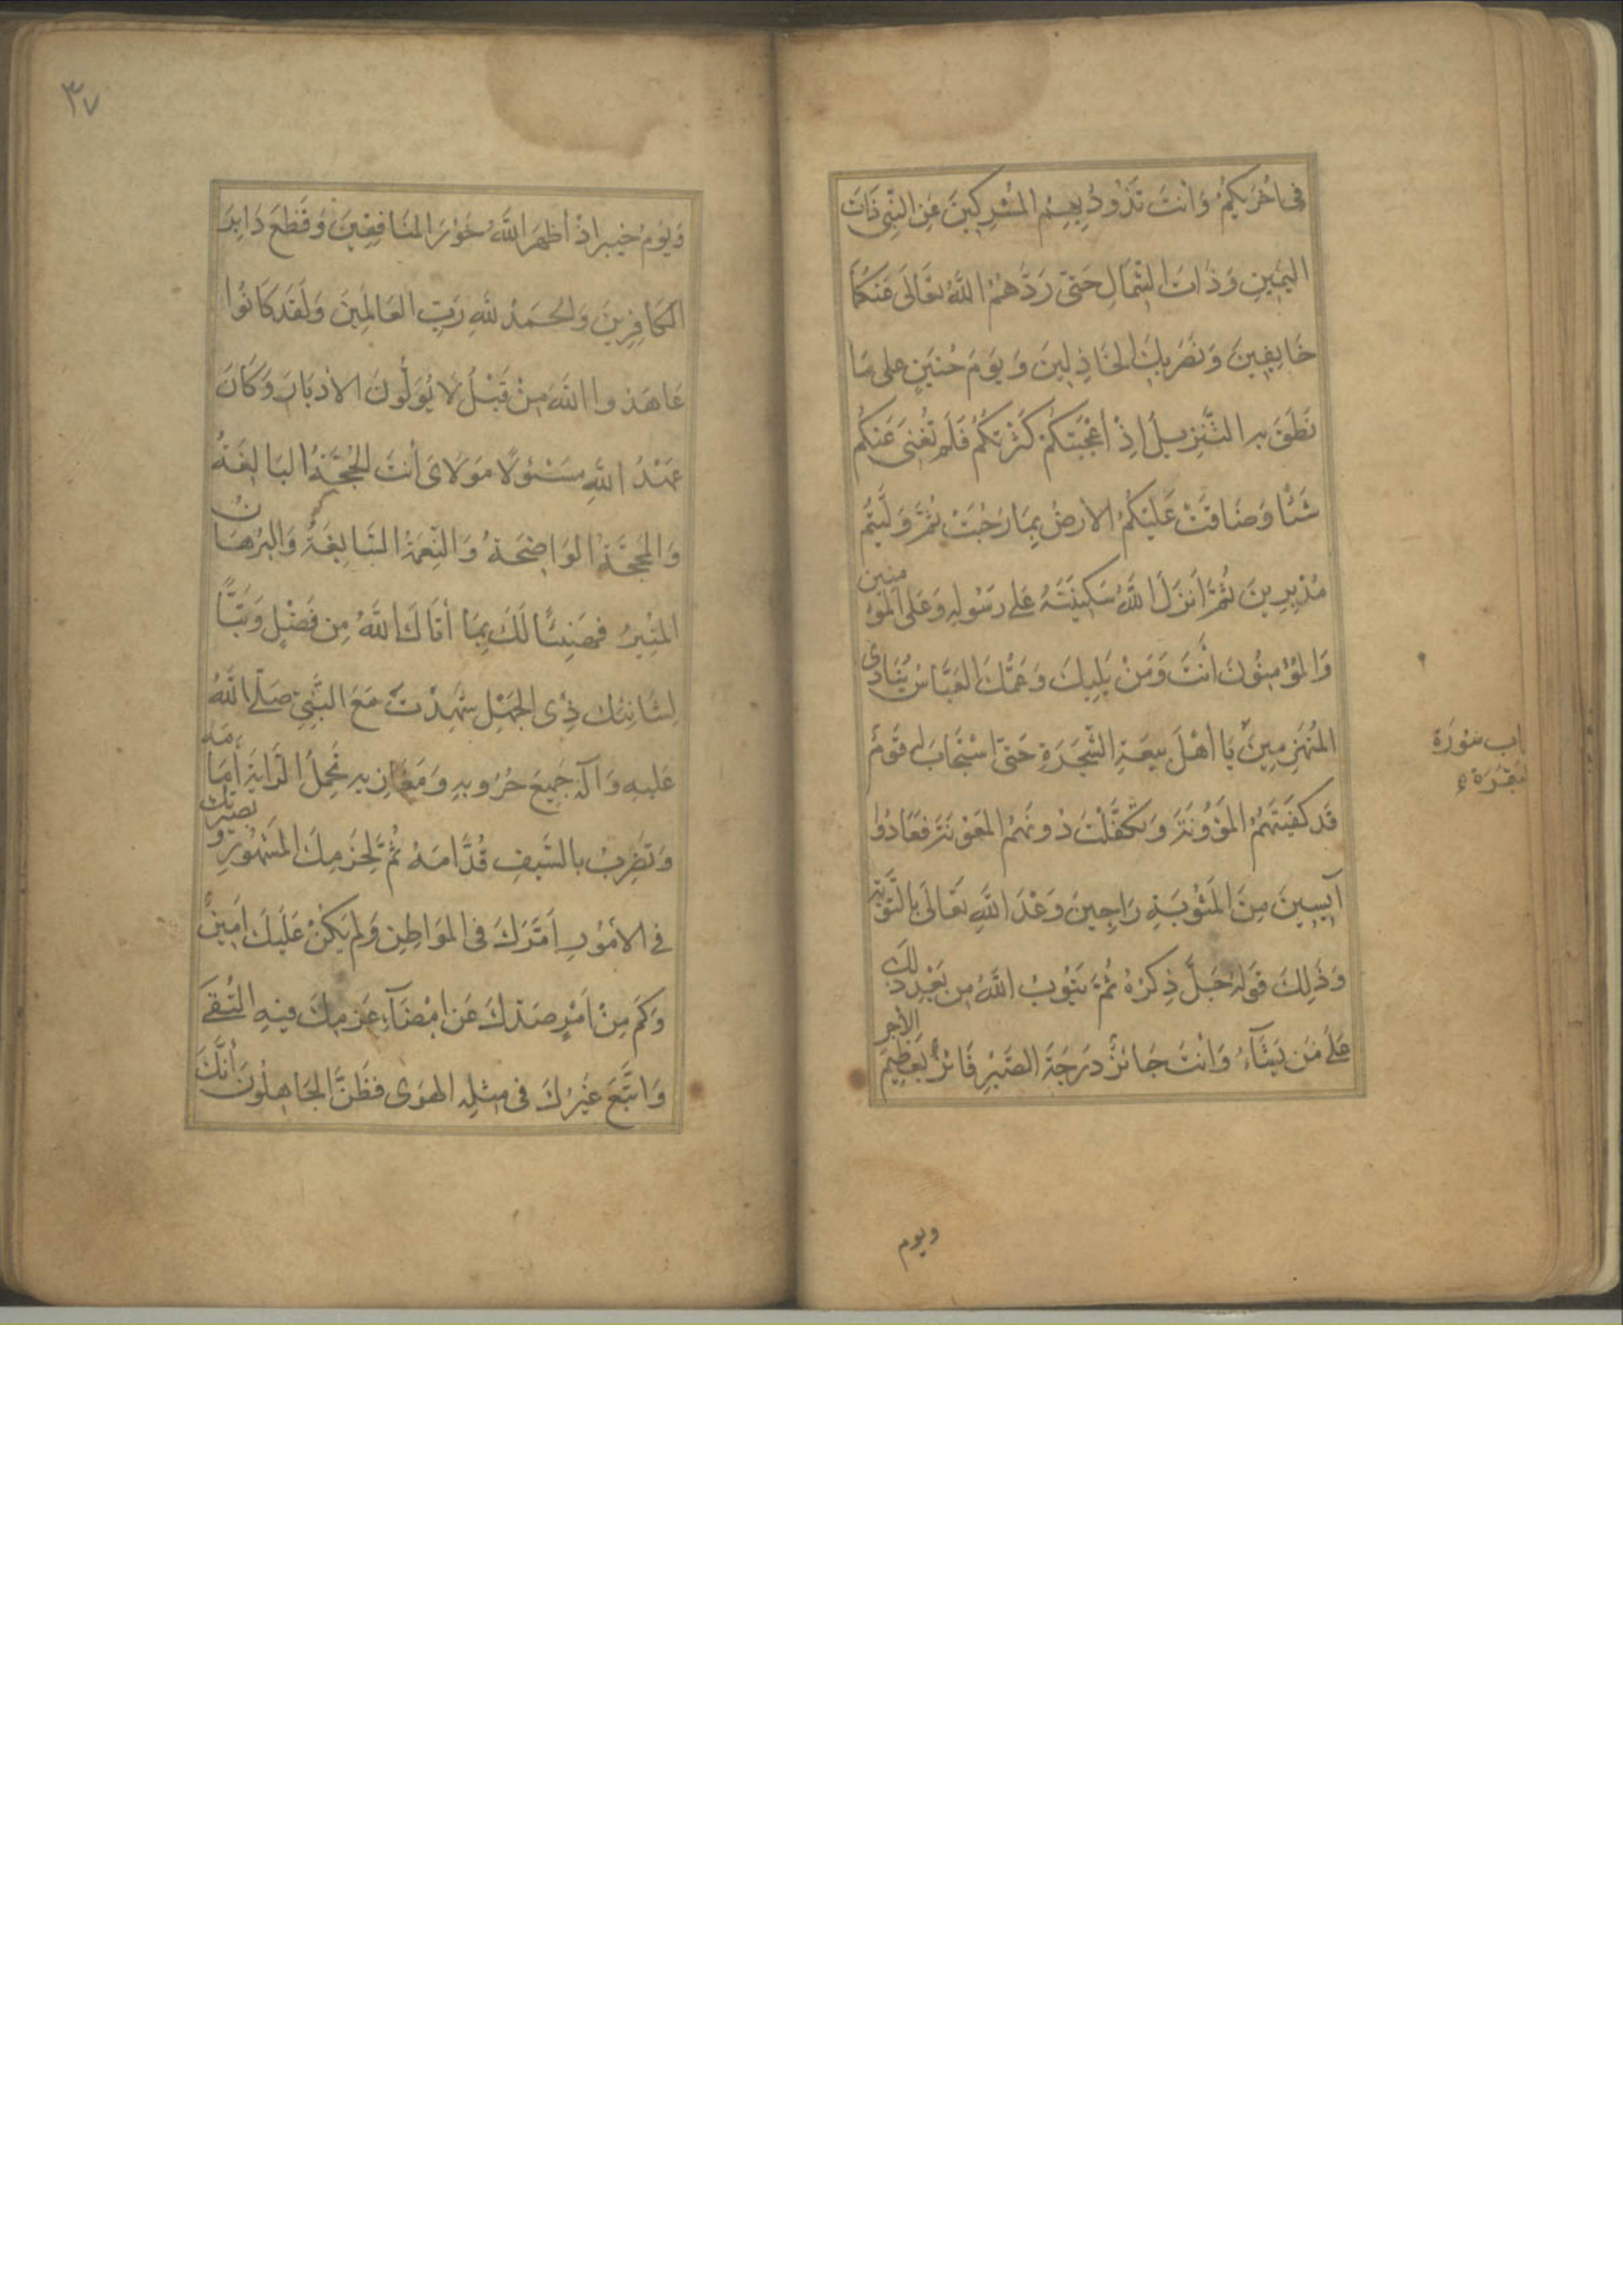 فِی اُخْرٰیكُمْ وَاَنْتَ تَذُوْدُ بِهِمُ الْمُشْرِكِیْنَ عَنِ النَّبِیِّ ذَاتَ
الیَمِیْنِ وَذَاتَ الشِّمَالِ حَتّٰی رَدَّهُمُ اللّٰهُ تَعَالَی عَنْكُمَا
خَایِفِیْنَ وَنَصَرَ بِكَ الْخَاذِلِیْنَ وَیَوْمَ حُنَیْنٍ عَلٰی مَا
نَطَقَ بِهِ التَّنْزِیْلُ اِذْ أَعْجَبَتْكُمْ كَثْرَتُكُمْ فَلَمْ تُغْنِی عَنْكُمْ
شَیْئًا وَضَاقَتْ عَلَیْكُمُ الاَرْضُ بِمَا رَحُبَتْ ثُمَّ وَلَّیْتُمْ
مُدْبِرِیْنَ ثُمَّ اَنْزَلَ اللّٰهُ سَكِیْنَتَهُ عَلٰی رَسُوْلِهِ وَعَلَی الْمُؤْمِنِیْنَ
وَالْمُؤْمِنُوْنَ اَنْتَ وَمَنْ یَلِیْكَ وَعَمُّكَ العَبَّاسُ یُنَادِی
الْمُنْهَزِمِیْنَ یَا أَهْلَ بَیْعَةِ الشَّجَرَةِ حَتّٰی اسْتَجَابَ لَهُ قَوْمٌ
قَدْ كَفَیْتَهُمُ الْمَؤُوْنَةَ وَتَكَفَّلْتَ دُوْنَهُمُ الْمَعُوْنَةَ فَعَادُوْا
آیِسِیْنَ مِنَ الْمَثُوْبَةِ رَاجِیْنَ وَعْدَ اللّٰهِ تَعَالَی بِالتَّوْبَةِ
وَذٰلِكَ قَوْلُهُ جَلَّ ذِكْرُهُ ثُمَّ یَتُوْبُ اللّٰهُ مِنْ بَعْدِ ذٰلِكَ
عَلٰی مَنْ یَشَآءُ وَاَنْتَ حَائِزٌ دَرَجَةَ الصَّبْرِ فَائِزٌ بِعَظِیْمِ الاَجْرِ
سُوْرَة
ویوم
٣٧
وَیَوْمَ خَیْبَرَ اِذْ أَظْهَرَ اللّٰهُ خَوَرَ الْمُنَافِقِیْنَ وَقَطَعَ دَابِرَ
الْكَافِرِیْنَ وَالْحَمْدُ لِلّٰهِ رَبِّ الْعَالَمِیْنَ وَلَقَدْ كَانُوْا
عَاهَدُوا اللّٰهَ مِنْ قَبْلُ لَا یُوَلُّوْنَ الاَدْبَارَ وَكَانَ
عَهْدُ اللّٰهِ مَسْئُوْلًا مَوْلَایَ أَنْتَ الْحُجَّةُ الْبَالِغَةُ
وَالْمَحَجَّةُ الْوَاضِحَةُ وَالنِّعْمَةُ السَّابِغَةُ وَالْبُرْهَانُ
الْمُنِیْرُ فَهَنِیْئًا لَكَ بِمَا أَتَاكَ اللّٰهُ مِنْ فَضْلٍ وَتَبًّا
لِشَانِئِكَ ذِی الْجَهْلِ شَهِدْتَ مَعَ النَّبِیِّ صَلَّی اللّٰهُ
عَلَیْهِ وَآلِهِ جَمِیْعَ حُرُوْبِهِ وَمَغَازِیْهِ تَحْمِلُ الرَّایَةَ أَمَامَهُ
وَتَضْرِبُ بِالسَّیْفِ قُدَّامَهُ ثُمَّ لِحَزْمِكَ الْمَشْهُوْرِ وَبَصِیْرَتِكَ
فِی الاُمُوْرِ اَمَّرَكَ فِی الْمَوَاطِنِ وَلَمْ یَكُنْ عَلَیْكَ اَمِیْرٌ
وَكَمْ مِنْ اَمْرٍ صَدَّكَ عَنْ اِمْضَآءِ عَزْمِكَ فِیْهِ التُّقٰی
وَاتَّبَعَ غَیْرُكَ فِی مِثْلِهِ الْهَوَی فَظَنَّ الْجَاهِلُوْنَ أَنَّكَ